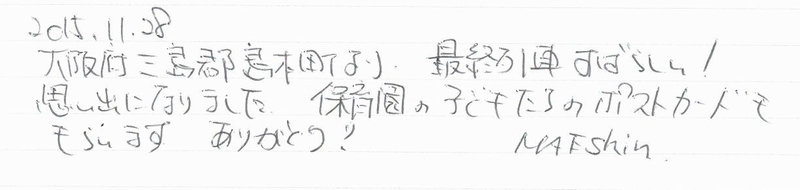 2015.11.28
大阪府三島郡島本町より. 最終列車 すばらしい!
思い出になりました 保育園の子どもたちのポストカードも
もらいます ありがとう!!
MAEshin.